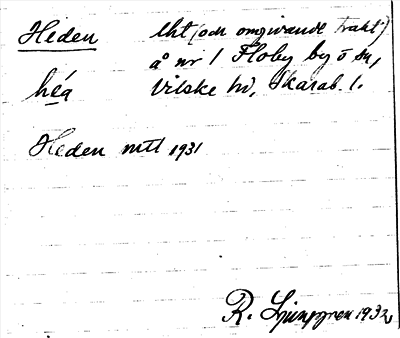 Heden lht (och omgivande trakt)
å nr 1 Floby by o sn,
héa Vilske hd, Skarab. l.
Heden mtl 1931
R. Ljunggren 1932